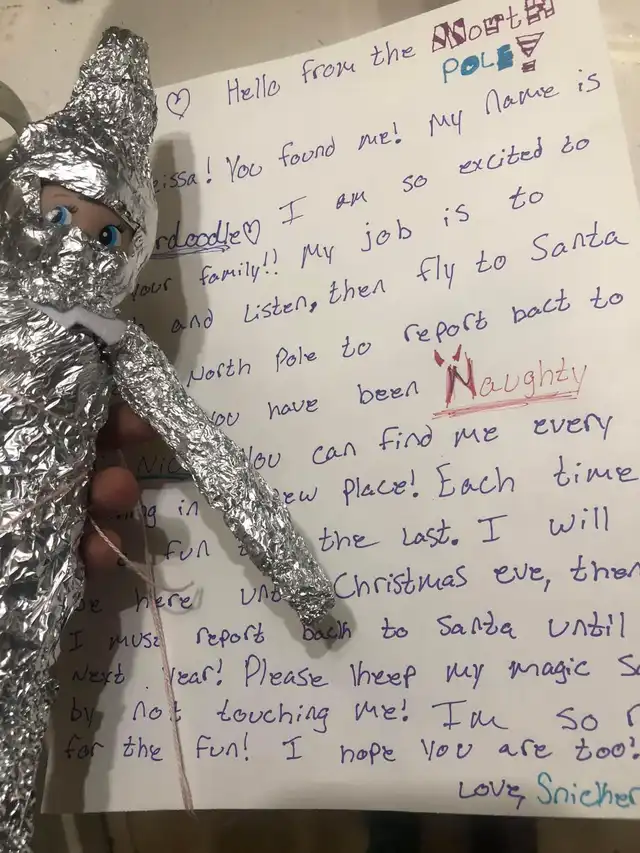 ♡ Hello from the North
POLE!
eissa! You found me! My name is
rdoodle♡ I am so excited to
your family!! My job is to
h and Listen, then fly to Santa
North Pole to report bact to
you have been Naughty
Nic You can find me every
ing in ew place! Each time
fun the last. I will
be here unt Christmas eve, then
I must report bach to Santa until
Next year! Please kheep my magic Sa
by not touching me! Im so r
for the fun! I hope You are too!
Love, Snicker